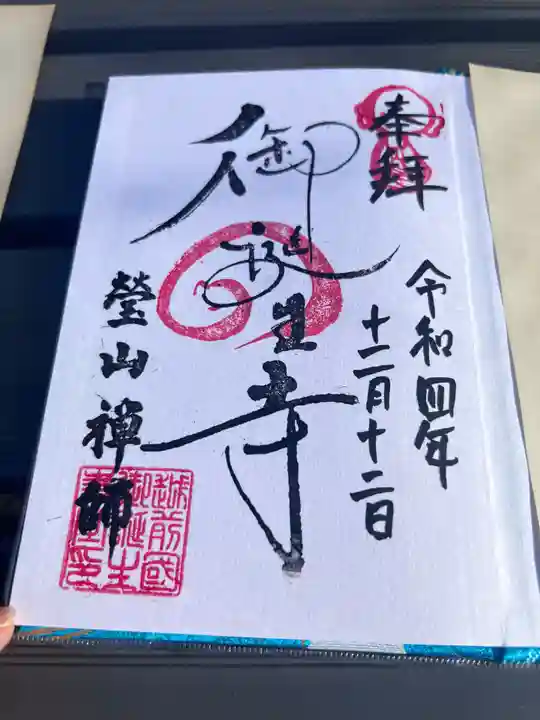 奉拝
令和四年
十二月十二日
御誕生寺
瑩山禅師
越前國
御誕生
寺
印